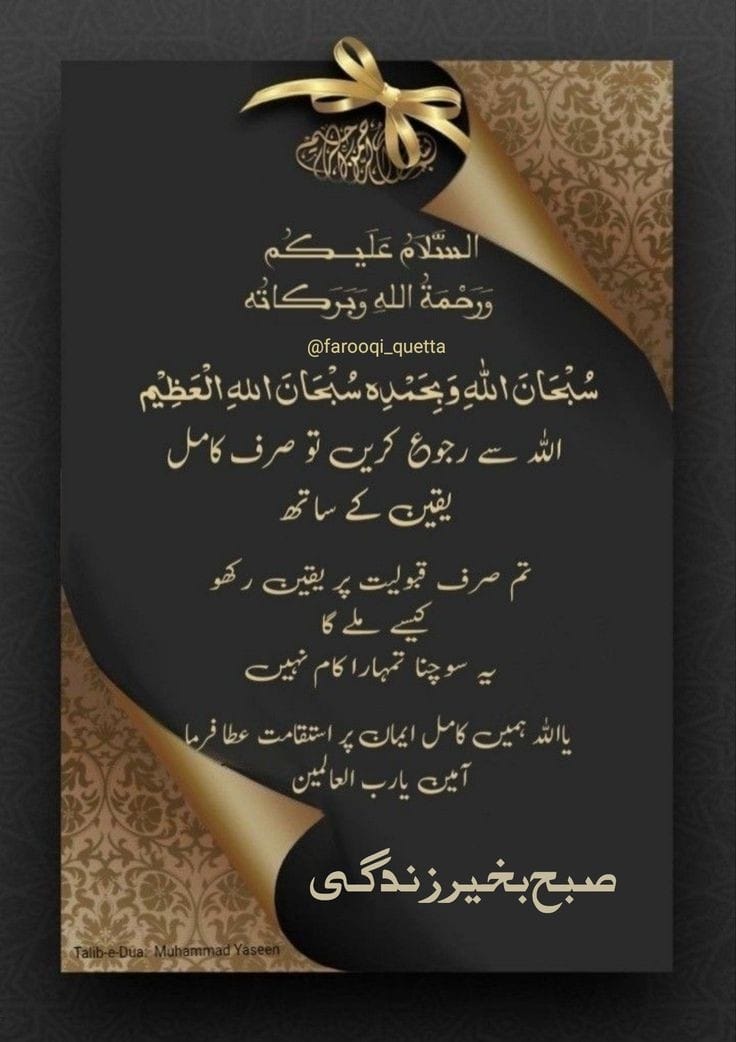 بسم الله الرحمن الرحيم
السَّلَامُ عَلَيــكُم
وَرَحْمَةُ اللهِ وَبَرَكَاتُه
@farooqi_quetta
سُبْحَانَ اللهِ وَبِحَمْدِه سُبْحَانَ اللهِ الْعَظِيْم
اللہ سے رجوع کریں تو صرف کامل
یقین کے ساتھ
تم صرف قبولیت پر یقین رکھو
کیسے ملے گا
یہ سوچنا تمہارا کام نہیں
یااللہ ہمیں کامل ایمان پر استقامت عطا فرما
آمین یارب العالمین
صبح بخیر زندگی
Talib-e-Dua: Muhammad Yaseen